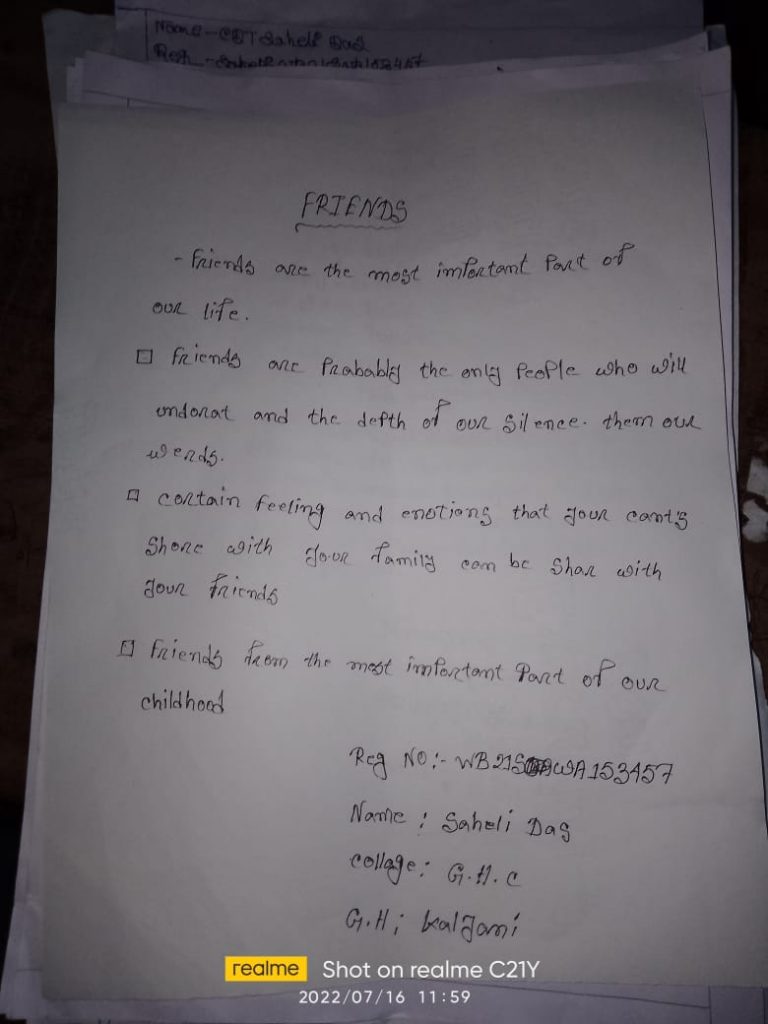 Name - CDT Saheli Das
FRIENDS
- Friends are the most important Part of
our life.
Friends are Probably the only People who will
undorat and the depth of our Silence. them our
words.
certain feeling and enotions that your cant's
Share with your family can be Shar with
your friends
Friends from the most important Part of our
childhood
Reg NO:- WB21S WA153457
Name : Saheli Das
collage: G.H.C
G.H; kalyani
realme Shot on realme C21Y
2022/07/16 11:59